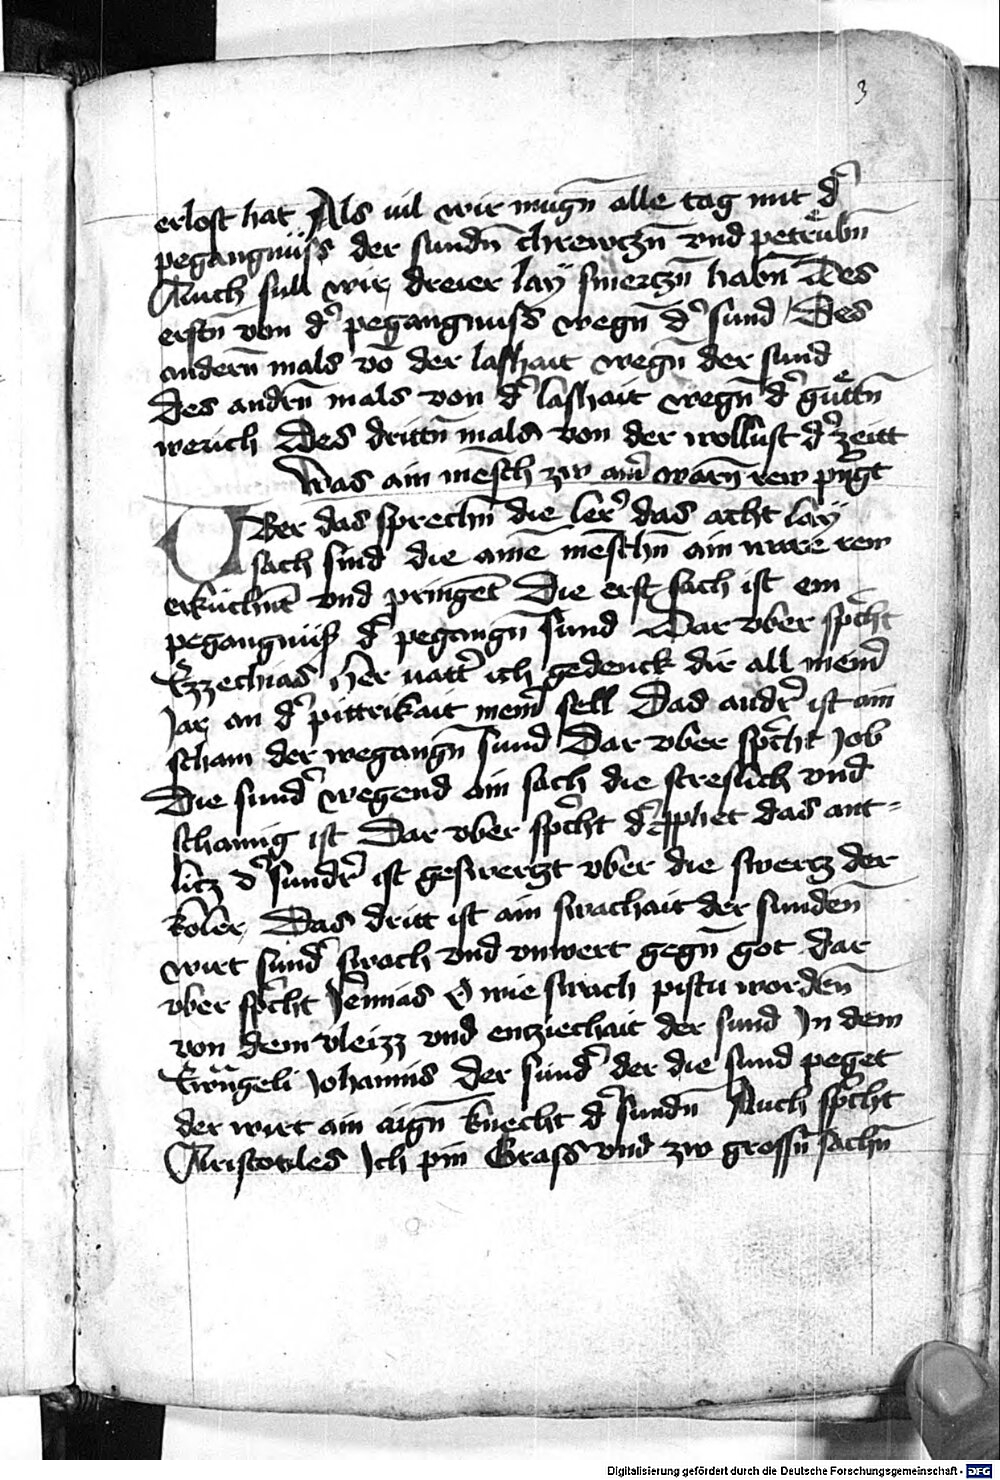 3
erlost hat Als uil wir mugn̄ alle tag mit d̛
pegangnüss der sundn̄ chrewczn̄ vnd petrůbn̄
Auch sull wir dreier lay smerczn̄ habn̄ Des
erstn̄ von d̛ pegangnuss wegn̄ d̛ sund / Des
andern̄ mals vō der lashait wegn̄ der sund
Des andrn̄ mals von d̛ lashait wegn̄ d̛ gůttn̄
werich Des drittn̄ mals von der wollust d̛ zeitt
Was ain mēsch zw ain̛ warn̄ rew pri̅gt
Vber das sprechn̄ die ler̛ das acht lay
sach sind die aine mēschn̄ ain ware rew
erkuchn̄t vnd pringēt Die erst sach ist ein
pegangnüss d̛ pegangn̄ sund Dar vber sp̄cht
Ezzechias Her uatt̛ ich gedenck dir all mein̛
Jar an d̛ pittrikait mein̛ sell Das andr̛ ist ain
scham der wegangn̄ sund Dar vber sp̄cht Job
Die sund̛ wegend ain sach die streflich vnd
schamig ist Dar vber sp̄cht d̛ p̄phet das ant=
litz d̛ sundr̛ ist geswerczt vber die swercz der
koler Das dritt ist ain swachait der sunden̄
wirt sund̛ swach vnd vnwert gegn̄ got dar
vber sp̄cht Jer̄mias O wie swach pistu worden̄
von dem vleizz vnd entziechait der sund Jn dem
Ewāgeli Johannis der sund̛ der die sund peget
der wirt ain aign̄ knecht d̛ sundn̄ Auch sp̄cht
Aristotiles Jch pin Gross vnd zw grossn̄ sachn̄
Digitalisierung gefördert durch die Deutsche Forschungsgemeinschaft - DFG